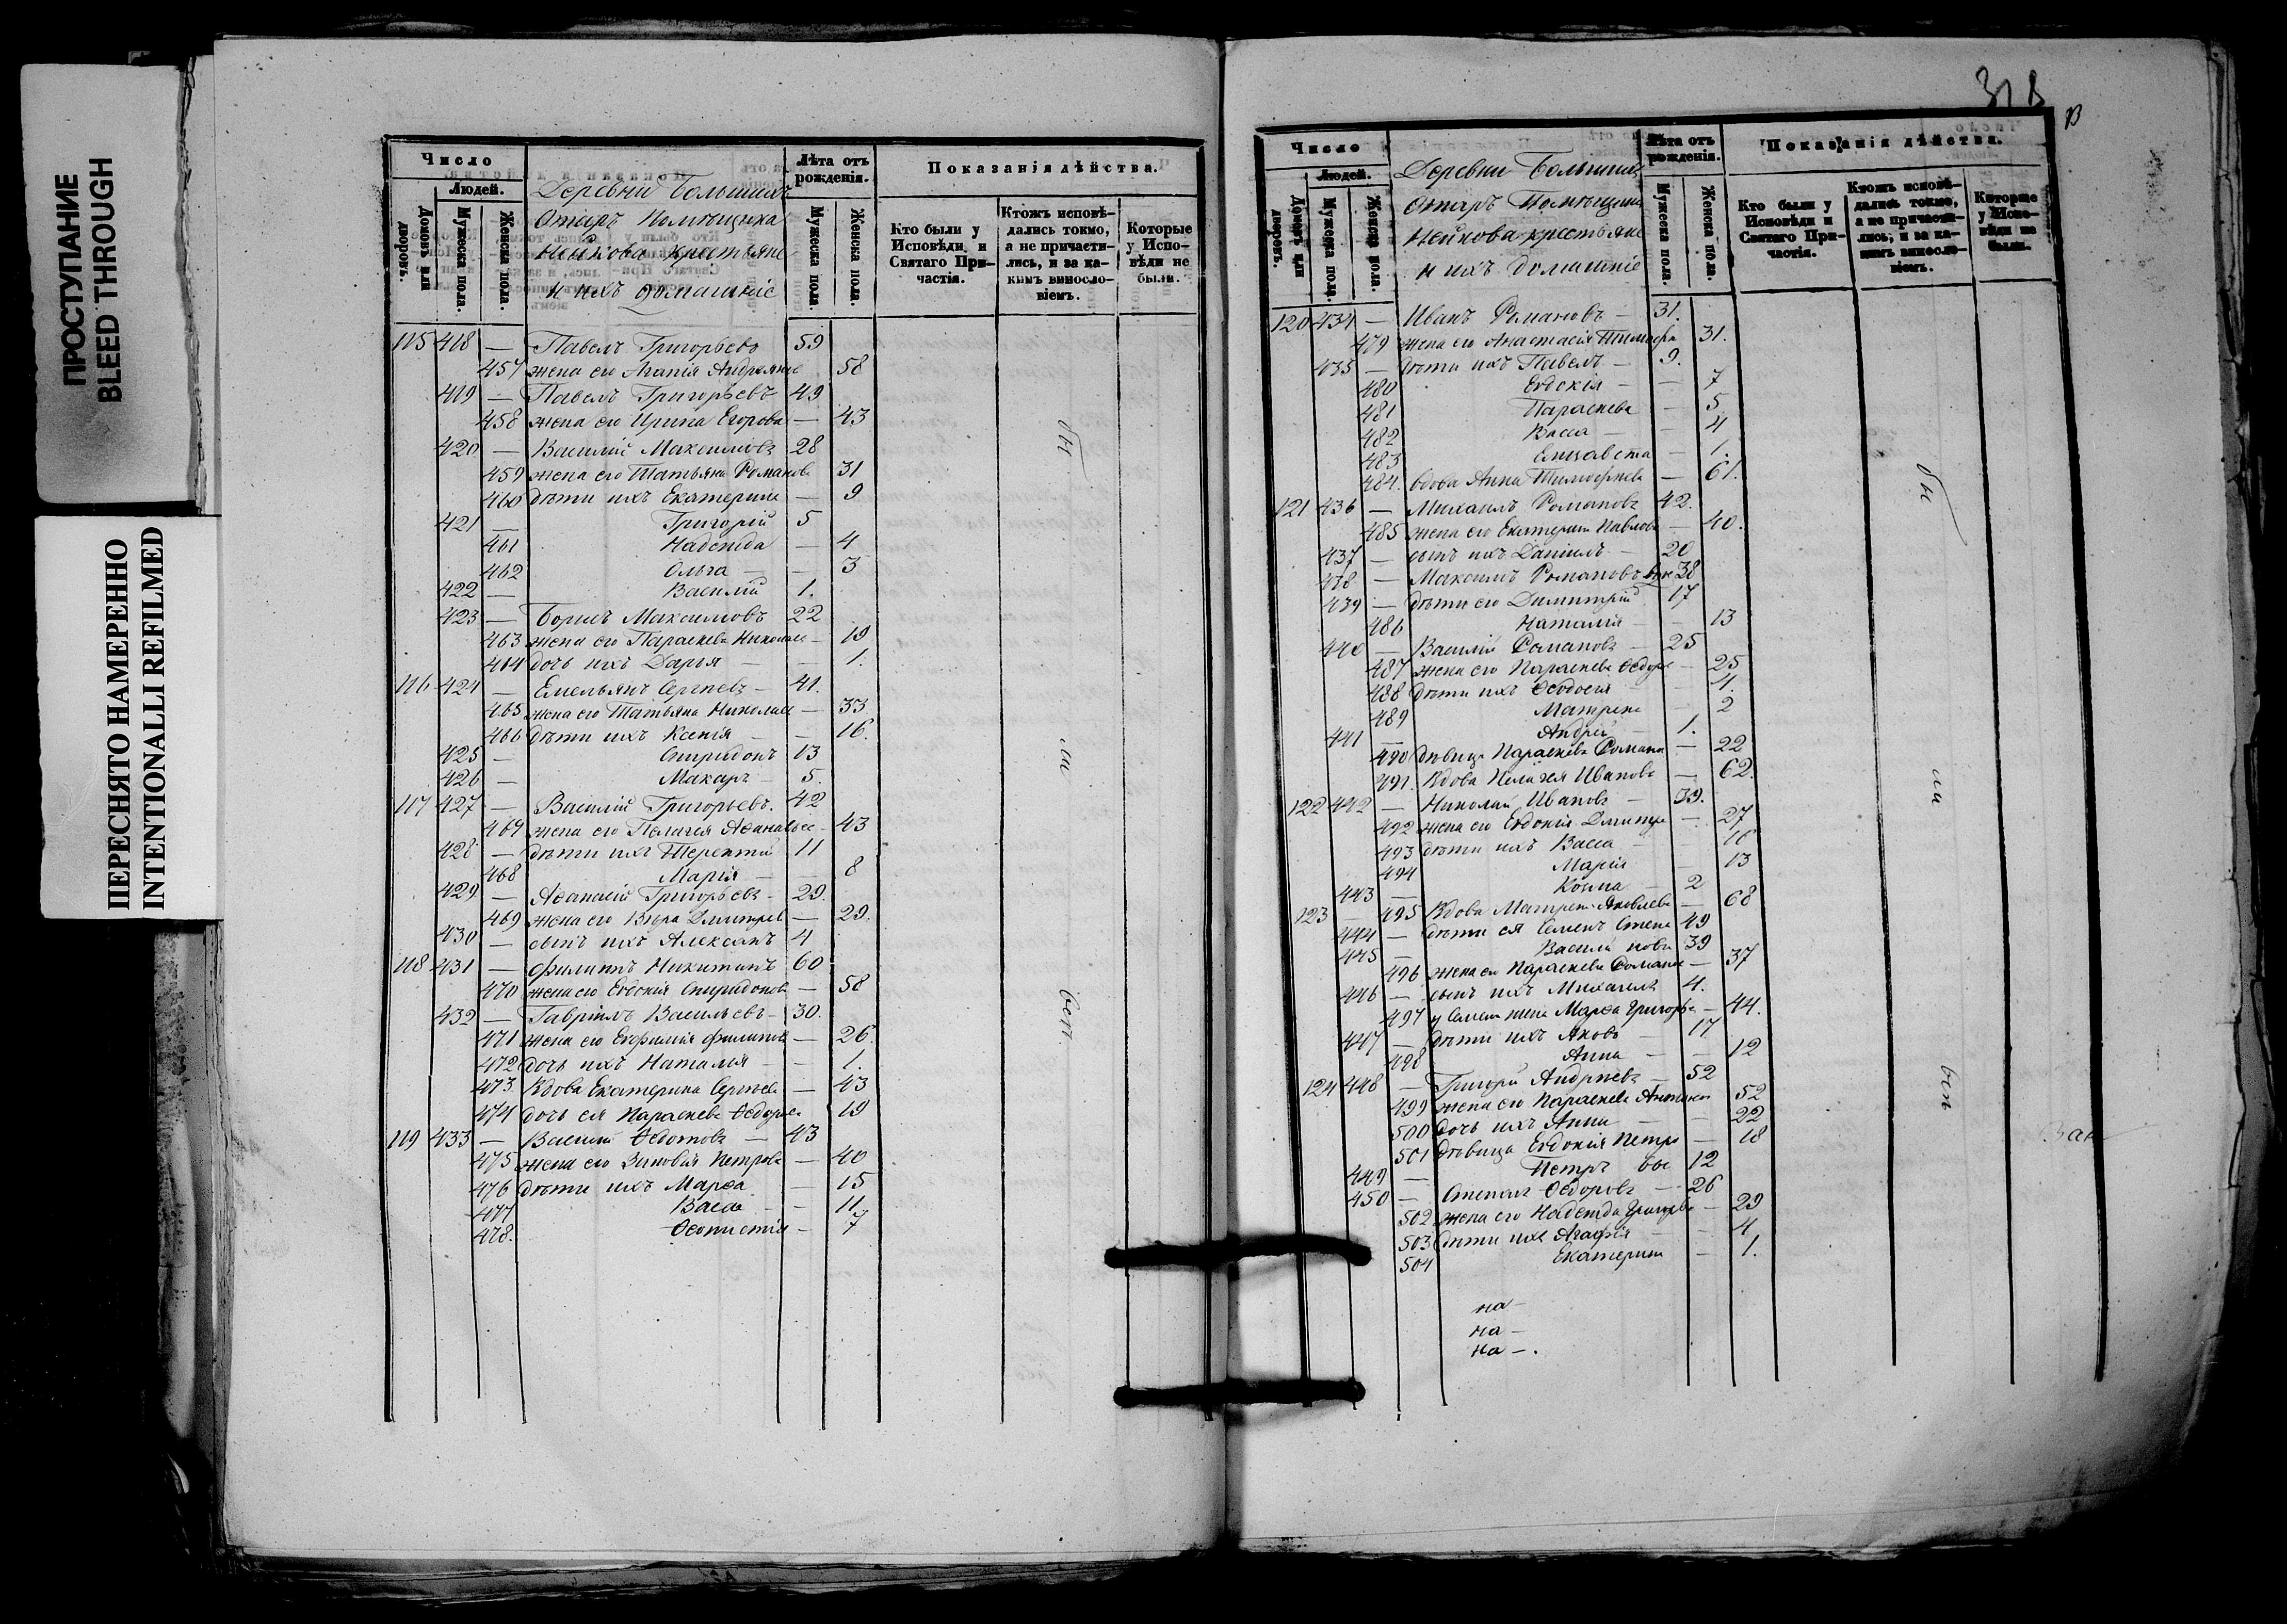 ПРОСТУПАНИЕ
BLEED THROUGH
ПЕРЕСНЯТО НАМЕРЕННО
INTENTIONALLI REFILMED
Число
Людей.
Домовъ или дворовъ.
Мужеска пола.
Женска пола.
Деревни Большихъ
Отаръ Помѣщика
крестьяне
и ихъ домашніе
Лѣта отъ рожденія.
Мужеска пола.
Женска пола.
Показанія дѣйства.
Кто были у Исповѣди и Святаго При-частія.
Ктожъ исповѣ-дались токмо, а не причасти-лись, и за ка-кимъ винословіемъ.
Которые у Испо-вѣди не были.
115 418 — Павелъ Григорьевъ 59
457 жена его Агапія 58
419 — Павелъ Григорьевъ 49
458 жена его Ирина Егорова — 43
420 — Василій Максимовъ 28
459 жена его Татьяна Романова 31
460 дѣти ихъ Екатерина — 9
421 — Григорій 5
461 Надежда — 4
462 Ольга — 3
422 — Василій 1.
423 — Борисъ Максимовъ 22
463 жена его Параскева Николае — 19
464 дочь ихъ Дарья — 1.
116 424 — Емельянъ Сергѣевъ — 41.
465 жена его Татьяна Николае — 33
466 дѣти ихъ Ксенія — 16.
425 — Спиридонъ 13
426 — Макаръ 5.
117 427 — Василій Григорьевъ. 42
467 жена его Пелагея Аѳанасье — 43
428 — дѣти ихъ Терентій 11
468 Марія — 8
429 — Аѳанасій Григорьевъ — 29.
469 жена его Вѣра Дмитрев — 29.
430 — сынъ ихъ Алексанъ 4
118 431 — Филиппъ Никитинъ 60
470 жена его Евдокія Спиридонов — 58
432 — Гавріилъ Васильевъ — 30.
471 жена его Евфимія Филипов — 26.
472 дочь ихъ Наталія — 1.
473. Вдова Екатерина Сергѣева — 43
474 дочь ея Параскева Ѳедорова 19
119 433 — Василій Ѳедотовъ — 43
475 жена его Зиновія Петрова — 40
476 дѣти ихъ Марѳа — 15
477 Васса — 11
478. Ѳеоктистія — 7
бы
ли
вси.
31
Число
Людей.
Домовъ или дворовъ.
Мужеска пола.
Женска пола.
Деревни Большихъ
Отаръ Помѣщика
Нейкова крестьяне
и ихъ домашніе
Лѣта отъ рожденія.
Мужеска пола.
Женска пола.
Показанія дѣйства.
Кто были у Исповѣди и Святаго При-частія.
Ктожъ исповѣ-дались токмо, а не причасти-лись, и за ка-кимъ винословіемъ.
Которые у Испо-вѣди не были.
120 434 — Иванъ Романовъ — 31.
479 жена его Анастасія Тимоѳе 31.
435 — дѣти ихъ Павелъ — 9.
480 Евдокія — 7
481 Параскева — 5
482 Васса — 4
483 Елизавета — 1.
484. вдова Анна Тимоѳеева — 61.
121 436 — Михаилъ Романовъ 42.
485 жена его Екатерина Павлова — 40.
437 — сынъ ихъ Даніилъ — 20
438 — Максимъ Романовъ 38
439 — дѣти его Димитрій 17
486 Наталія — 13
440 — Василій Романовъ — 25
487 жена его Параскева Ѳедоро — 25
488 дѣти ихъ Ѳеодосія — 4.
489 Матрена — 2
441 — Андрей — 1.
490 дѣвица Параскева Романа — 22
491. Вдова Пелагея Иванова — 62.
122 442 — Николай Ивановъ — 39.
492 жена его Евдокія Дмитре — 27
493 дѣти ихъ Васса — 16
494 Марія — 13
443 — Козма — 2
123 — 495 Вдова Матрена Яковлева — 68
444 — дѣти ея Семенъ Степа 49
445 — Василій новы 39
496 жена его Параскева Романа — 37
446 — сынъ ихъ Михаилъ 4.
497 у Семена жена Марѳа Григорье — 44.
447 — дѣти ихъ Яковъ — 17
498 Анна — 12
124 448 — Григорій Андреевъ — 52
499 жена его Параскева 52
500 дочь ихъ Анна — 22
501 дѣвица Евдокія Петро — 18
449 — Петръ вы 12
450 — Степанъ Ѳедоровъ — 26
502 жена его Надежда Григорье — 29
503 дѣти ихъ Агафія — 4
504 Екатерина — 1.
на —
на —
на — .
бы
ли
вси